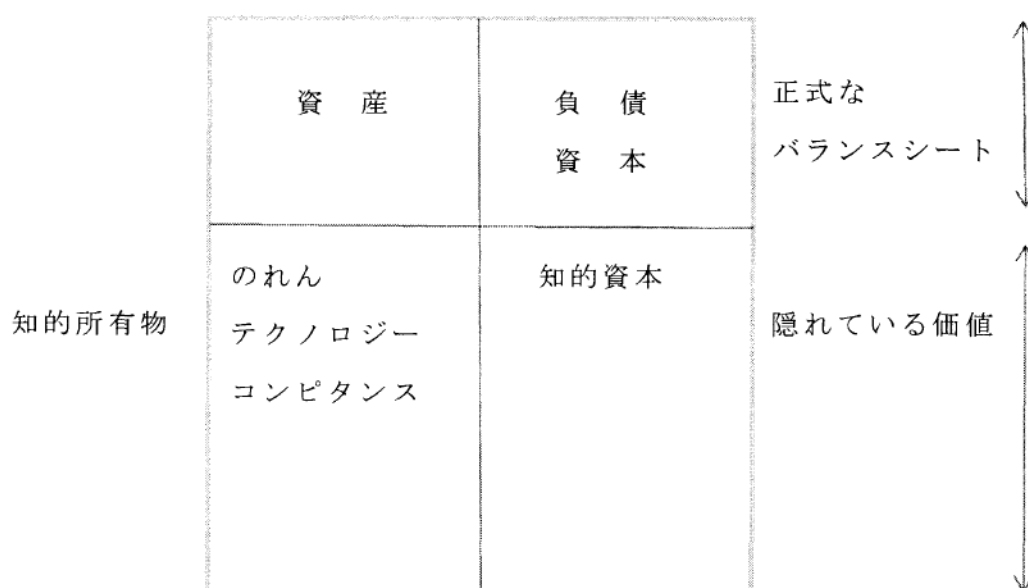 資 産
負 債
資 本
正式な
バランスシート
知的所有物
のれん
テクノロジー
コンピタンス
知的資本
隠れている価値